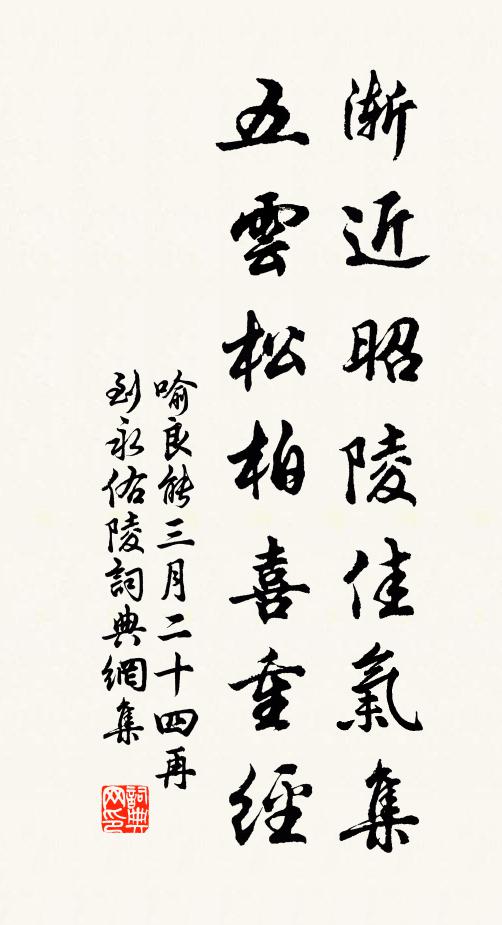 漸近昭陵佳氣集
五雲松柏喜重經
喻良能三月二十四再
到永佑陵詞典網集
詞典
网印